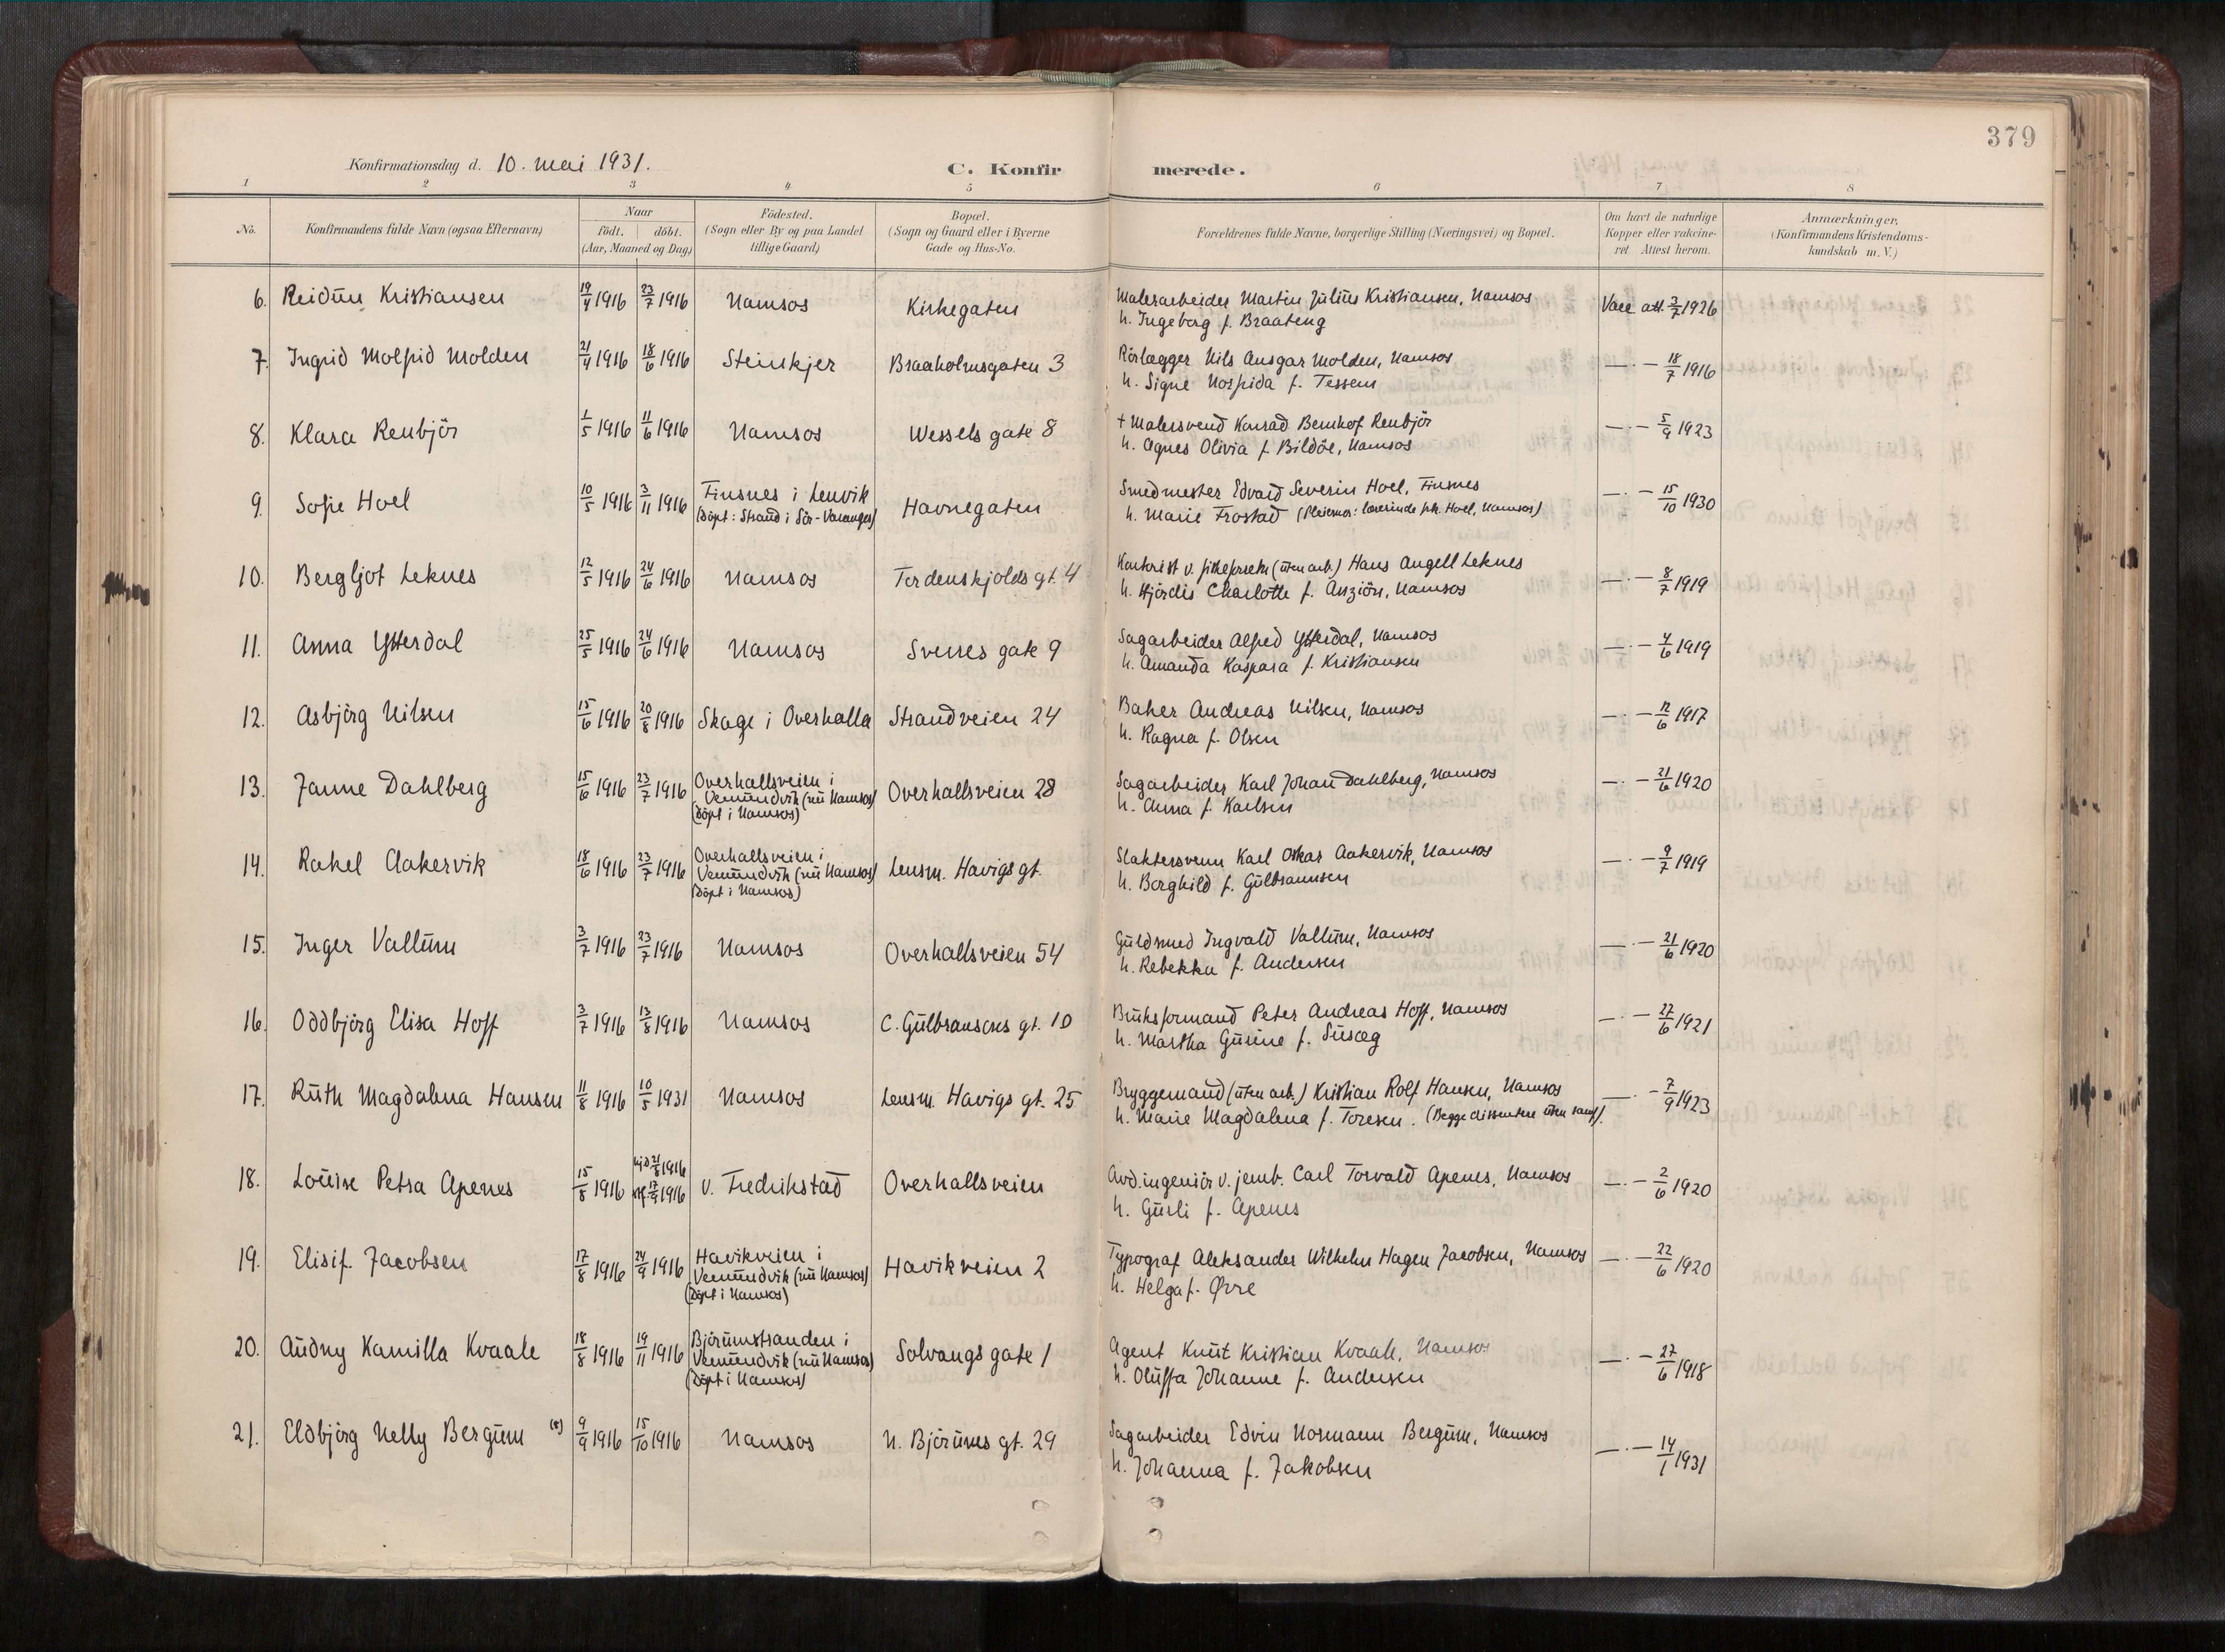 379
Konfirmationsdag d. 10. mai 1931.
C. Konfirmerede.
1 2 3 4 5 6 7 8
No.
Konfirmandens fulde Navn (ogsaa Efternavn)
Naar
födt. döbt.
(Aar, Maaned og Dag)
Födested.
(Sogn eller By og paa Landet
tillige Gaard)
Bopæl.
(Sogn og Gaard eller i Byerne
Gade og Hus-No.
Forældrenes fulde Navne, borgerlige Stilling (Næringsvei) og Bopæl.
Om havt de naturlige
Kopper eller vakcine-
ret Attest herom.
Anmærkninger,
(Konfirmandens Kristendoms-
kundskab m. V.)
6. Reidun Kristiansen 19/4 1916 23/7 1916 Namsos Kirkegaten Malerarbeider Martin Julius Kristiansen, Namsos Vacc att. 3/7 1926
h. Ingeborg f. Braateng
7. Ingrid Molfrid Molden 21/4 1916 18/6 1916 Steinkjer Braaholmsgaten 3 Rörlægger Nils Ansgar Molden, Namsos — · — 18/7 1916
h. Signe Nosfrida f. Tessem
8. Klara Renbjör 1/5 1916 11/6 1916 Namsos Wessels gate 8 + Malersvend Konrad Bernhof Renbjör — · — 5/9 1923
h. Agnes Olivia f. Bildöe, Namsos
9. Sofie Hoel 10/5 1916 3/11 1916 Finsnes i Lenvik Havnegaten Smedmester Edvard Severin Hoel, Finsnes — · — 15/10 1930
(döpt: Strand i Sör-Varanger) h. Marie Frostad (Pleiemor: lærerinde frk. Hoel, Namsos)
10. Bergljot Leknes 12/5 1916 24/6 1916 Namsos Tordenskjolds gt. 4 Kontorist v. (uten arb.) Hans Angell Leknes — · — 8/7 1919
h. Hjördis Charlotte f. Anziön, Namsos
11. Anna Ytterdal 25/5 1916 24/6 1916 Namsos Sverres gate 9 Sagarbeider Alfred Ytterdal, Namsos — · — 4/6 1919
h. Amanda Kaspara f. Kristiansen
12. Asbjörg Nilsen 15/6 1916 20/8 1916 Skage i Overhalla Strandveien 24 Baker Andreas Nilsen, Namsos — · — 12/6 1917
h. Ragna f. Olsen
13. Janne Dahlberg 15/6 1916 23/7 1916 Overhallsveien i Overhallsveien 28 Sagarbeider Karl Johan Dahlberg, Namsos — · — 21/6 1920
Vemundvik (nu Namsos) h. Anna f. Karlsen
(döpt i Namsos)
14. Rakel Aakervik 18/6 1916 23/7 1916 Overhallsveien i Lensm. Havigs gt. Slaktersvenn Karl Oskar Aakervik, Namsos — · — 9/7 1919
Vemundvik (nu Namsos) h. Borghild f. Gulbrannsen
(döpt i Namsos)
15. Inger Vallum 3/7 1916 23/7 1916 Namsos Overhallsveien 54 Guldsmed Ingvald Vallum, Namsos — · — 21/6 1920
h. Rebekka f. Andersen
16. Oddbjörg Elisa Hoff 3/7 1916 13/8 1916 Namsos C. Gulbransens gt. 10 Bruksformand Peter Andreas Hoff, Namsos — · — 27/6 1921
h. Martha Gurine f. Susæg
17. Ruth Magdalena Hansen 11/8 1916 10/5 1931 Namsos Lensm. Havigs gt. 25 Bryggemand (uten arb.) Kristian Rolf Hansen, Namsos — · — 7/9 1923
h. Marie Magdalena f. Toresen. (Begge dissentere uten samf).
18. Louise Petra Apenes 15/8 1916 hjd 21/8 1916 v. Fredrikstad Overhallsveien Avd.ingeniör v. jernb. Carl Torvald Apenes, Namsos — · — 2/6 1920
17/9 1916 h. Gurli f. Apenes
19. Elisif Jacobsen 17/8 1916 24/9 1916 Havikveien i Havikveien 2 Typograf Aleksander Wilhelm Hagen Jacobsen, Namsos — · — 22/6 1920
Vemundvik (nu Namsos) h. Helga f. Øvre
(döpt i Namsos)
20. Audny Kamilla Kvaale 18/8 1916 19/11 1916 Björumstranden i Solvangs gate 1 Agent Knut Kristian Kvaale, Namsos — · — 27/6 1918
Vemundvik (nu Namsos) h. Oluffa Johanne f. Andersen
(döpt i Namsos)
21. Eldbjörg Nelly Bergum 9/9 1916 15/10 1916 Namsos N. Björums gt. 29 Sagarbeider Edvin Normann Bergum, Namsos — · — 14/1 1931
h. Johanna f. Jakobsen